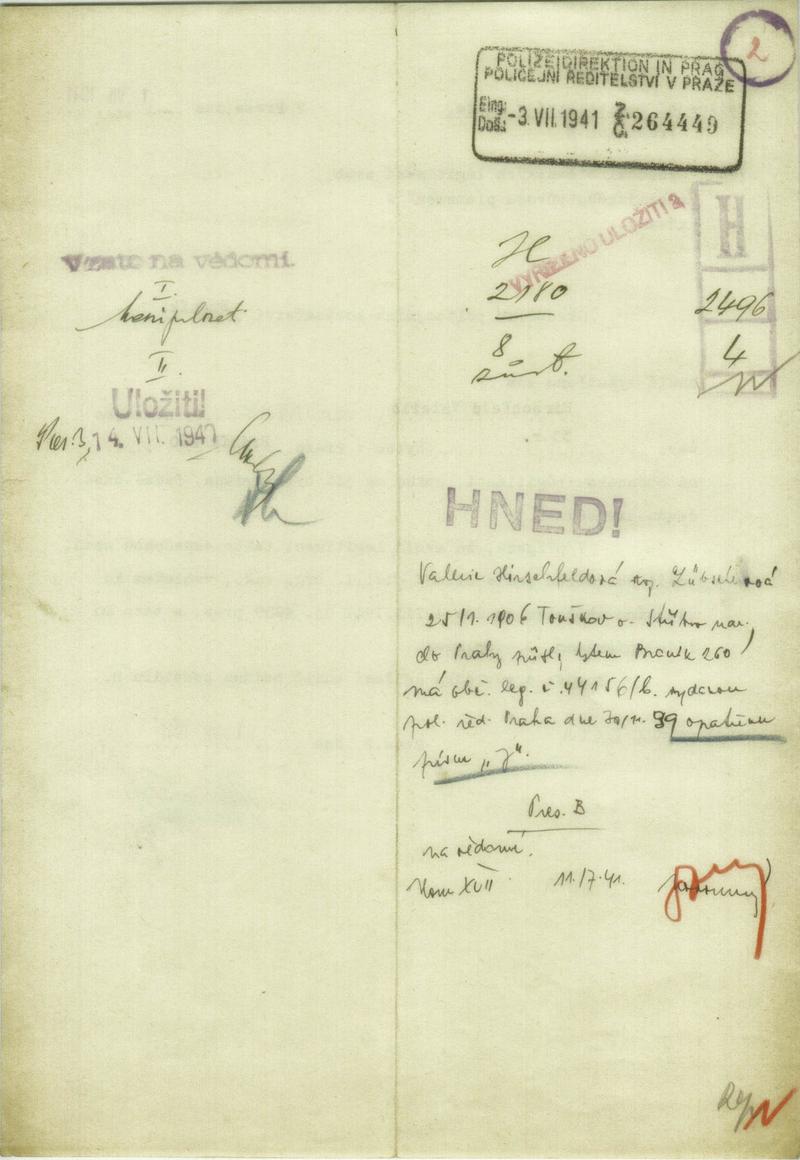 Vzato na vědomí.
I.
II.
Uložiti!
Pres. B, 14. VII. 1941
2
POLIZEIDIREKTION IN PRAG
POLICEJNÍ ŘEDITELSTVÍ V PRAZE
Eing.:
Doš.: -3. VII. 1941 264449
VYŘÍZENO ULOŽITI
H
H
2180
2496
8
4
HNED!
Valerie Hirschfeldová roz.
25/1. 1906 Touškov o. Stříbro nar.,
do Prahy přísl., bytem Braník 260
má obč. leg. č. 44156/b. vydanou
pol. řed. Praha dne 39 opatřenu
písm „J".
Pres. B
na vědomí.
Kom XVII 11./7. 41.